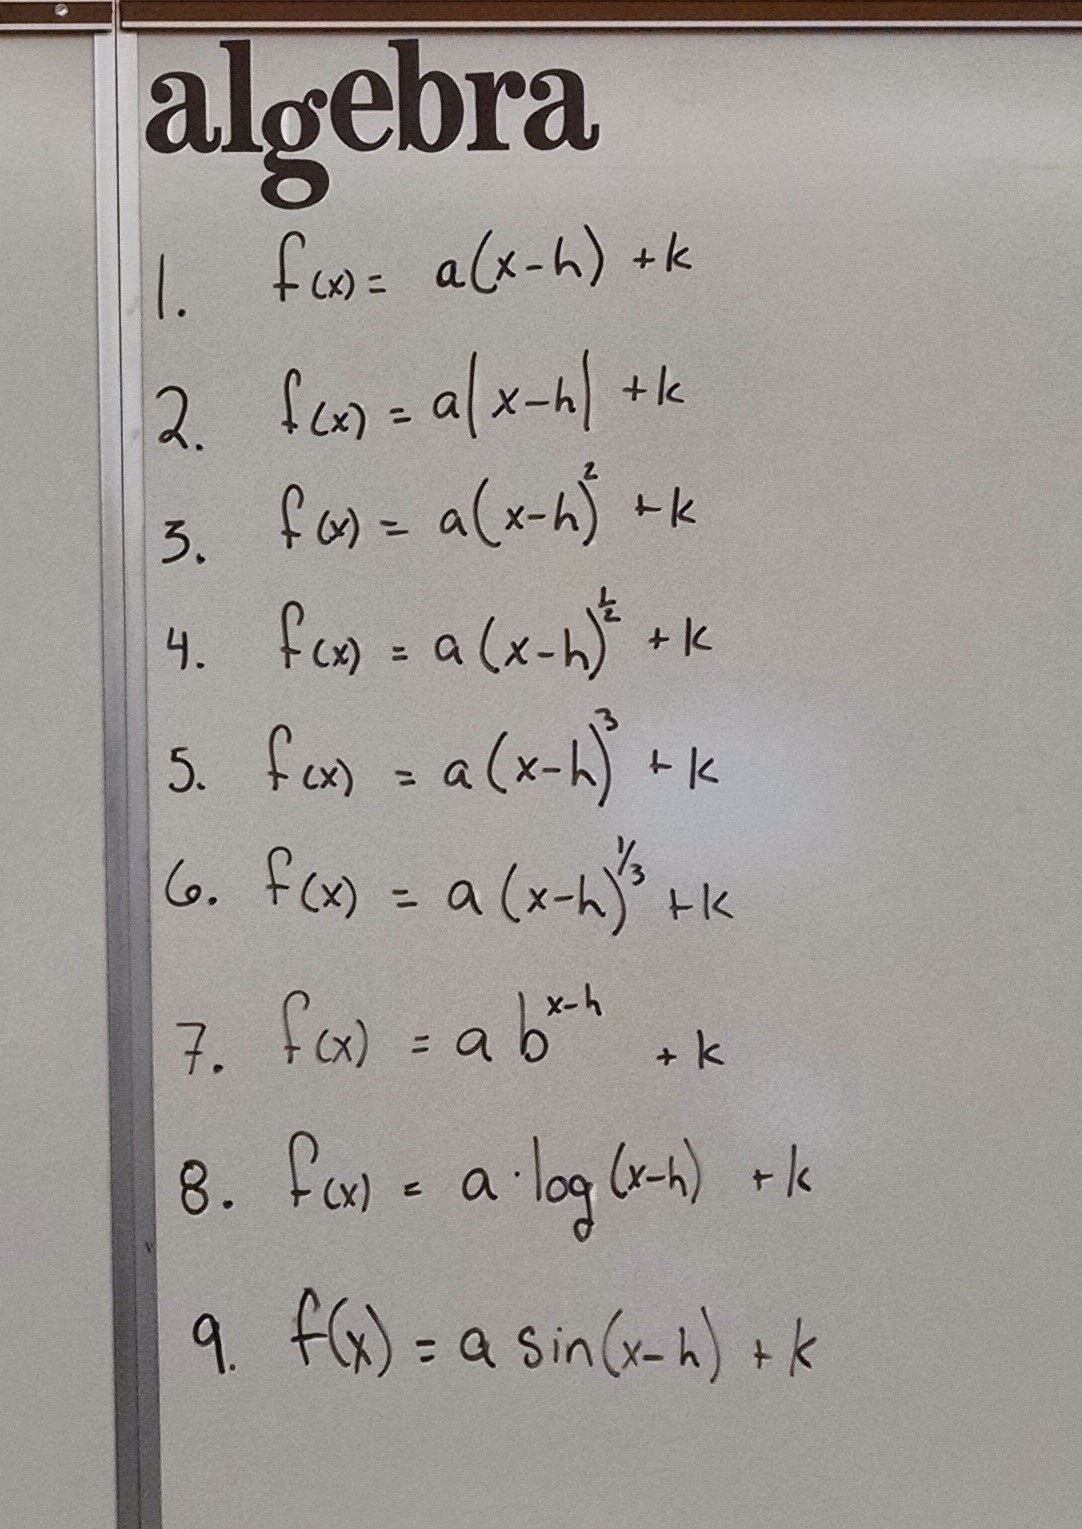 algebra
1. f(x) = a(x-h) + k
2. f(x) = a|x-h| + k
3. f(x) = a(x-h)² + k
4. f(x) = a(x-h)^½ + k
5. f(x) = a(x-h)³ + k
6. f(x) = a(x-h)^1/3 + k
7. f(x) = a b^x-h + k
8. f(x) = a · log(x-h) + k
9. f(x) = a sin(x-h) + k